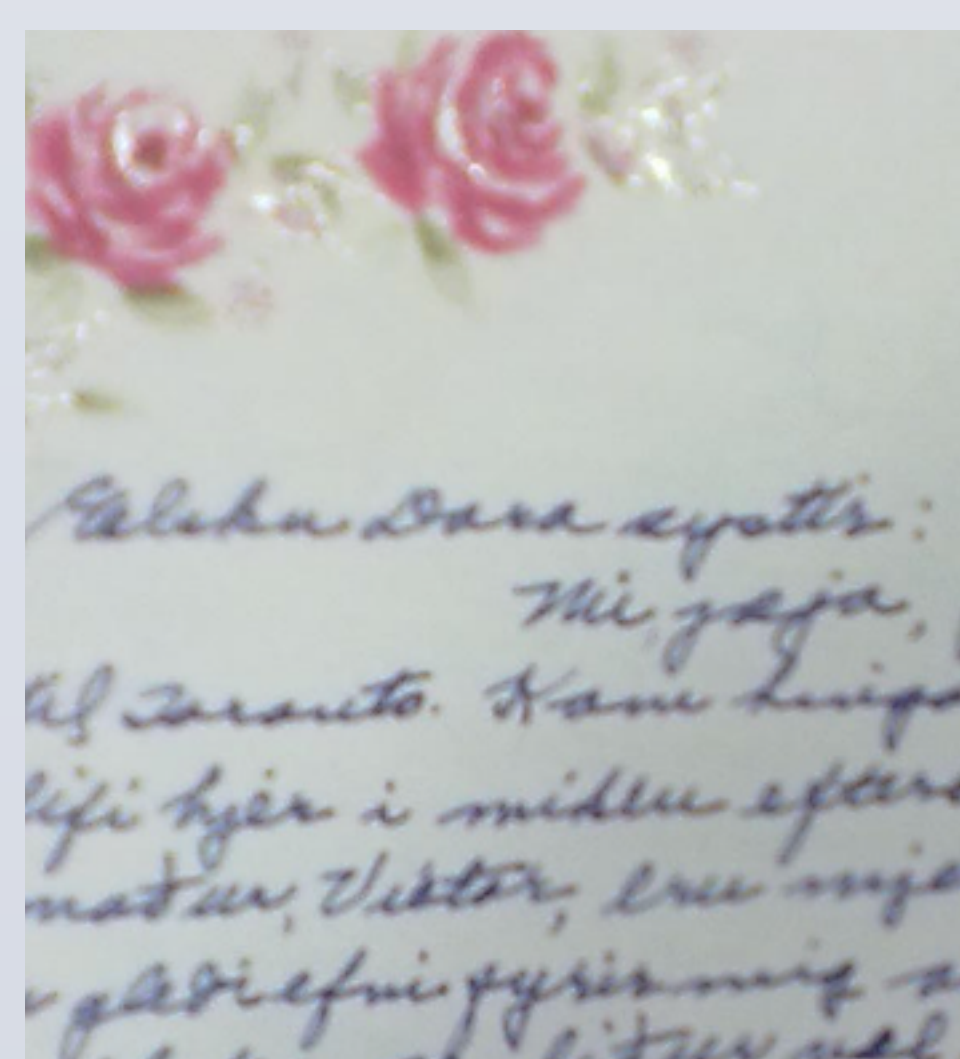 Elsku Dora systir:
Nú, jæja,
til Toronto. Kom hinga
lifi hjer i midlu efter
maður, Viktor, eru mje
gleði efni fyrir mig a
litur vel